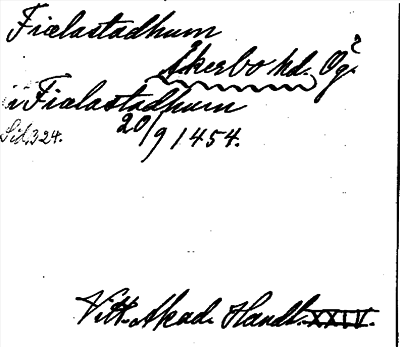 Fiælastadhum
Åkerbo hd. Ög.?
i Fiælastadhum
Sid. 324.
20/9 1454.
Vitt. Akad. Handl. XXIV.